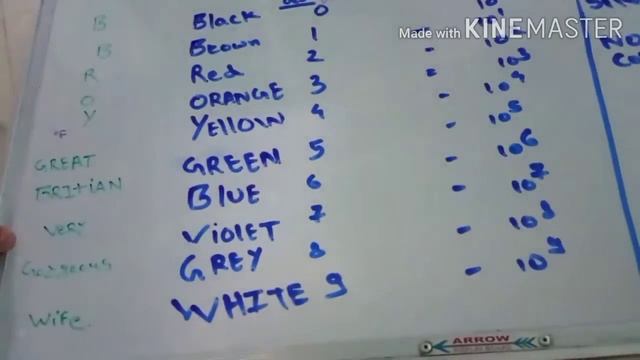 Made with KINEMASTER
B Black 0 10
B Brown 1 - 10
R Red 2 - 10³
O ORANGE 3 - 10⁴
Y YELLOW 4 - 10⁵
OF
GREAT GREEN 5 - 10⁶
BRITIAN BLUE 6 - 10⁷
VERY VIOLET 7 - 10⁸
Gorgeous GREY 8 - 10⁹
Wife. WHITE 9
NO
ARROW